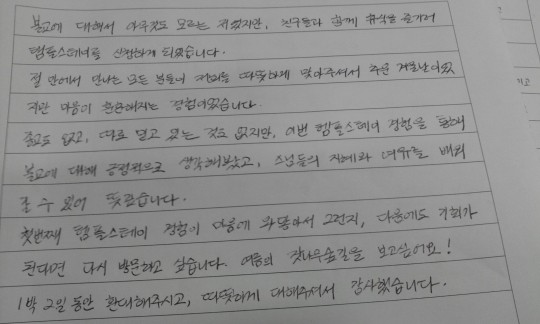 불교에 대해서 아무것도 모르는 저였지만, 친구들과 함께 휴식을 즐기러
템플스테이를 신청하게 되었습니다.
절 안에서 만나는 모든 분들이 저희를 따뜻하게 맞아주셔서 추운 겨울날이었
지만 마음이 훈훈해지는 경험이었습니다.
종교도 없고, 따로 믿고 있는 것도 없지만, 이번 템플스테이 경험을 통해
불교에 대해 긍정적으로 생각해봤고, 스님들의 지혜와 여유를 배워
갈 수 있어 뜻깊습니다.
첫번째 템플스테이 경험이 마음에 와닿아서 그런지, 다음에도 기회가
된다면 다시 방문하고 싶습니다. 여름의 잣나무숲길을 보고싶어요!
1박 2일동안 환대해주시고, 따뜻하게 대해주셔서 감사했습니다.